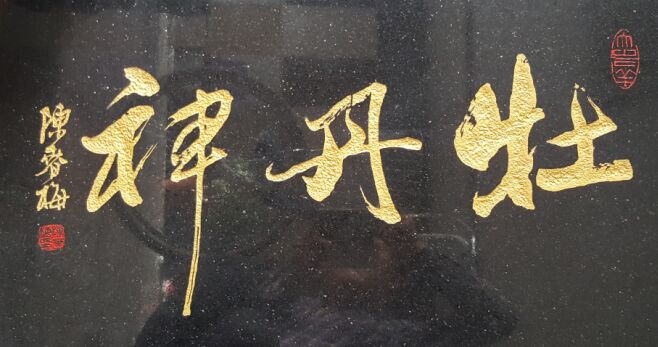 牡丹神
陳香梅